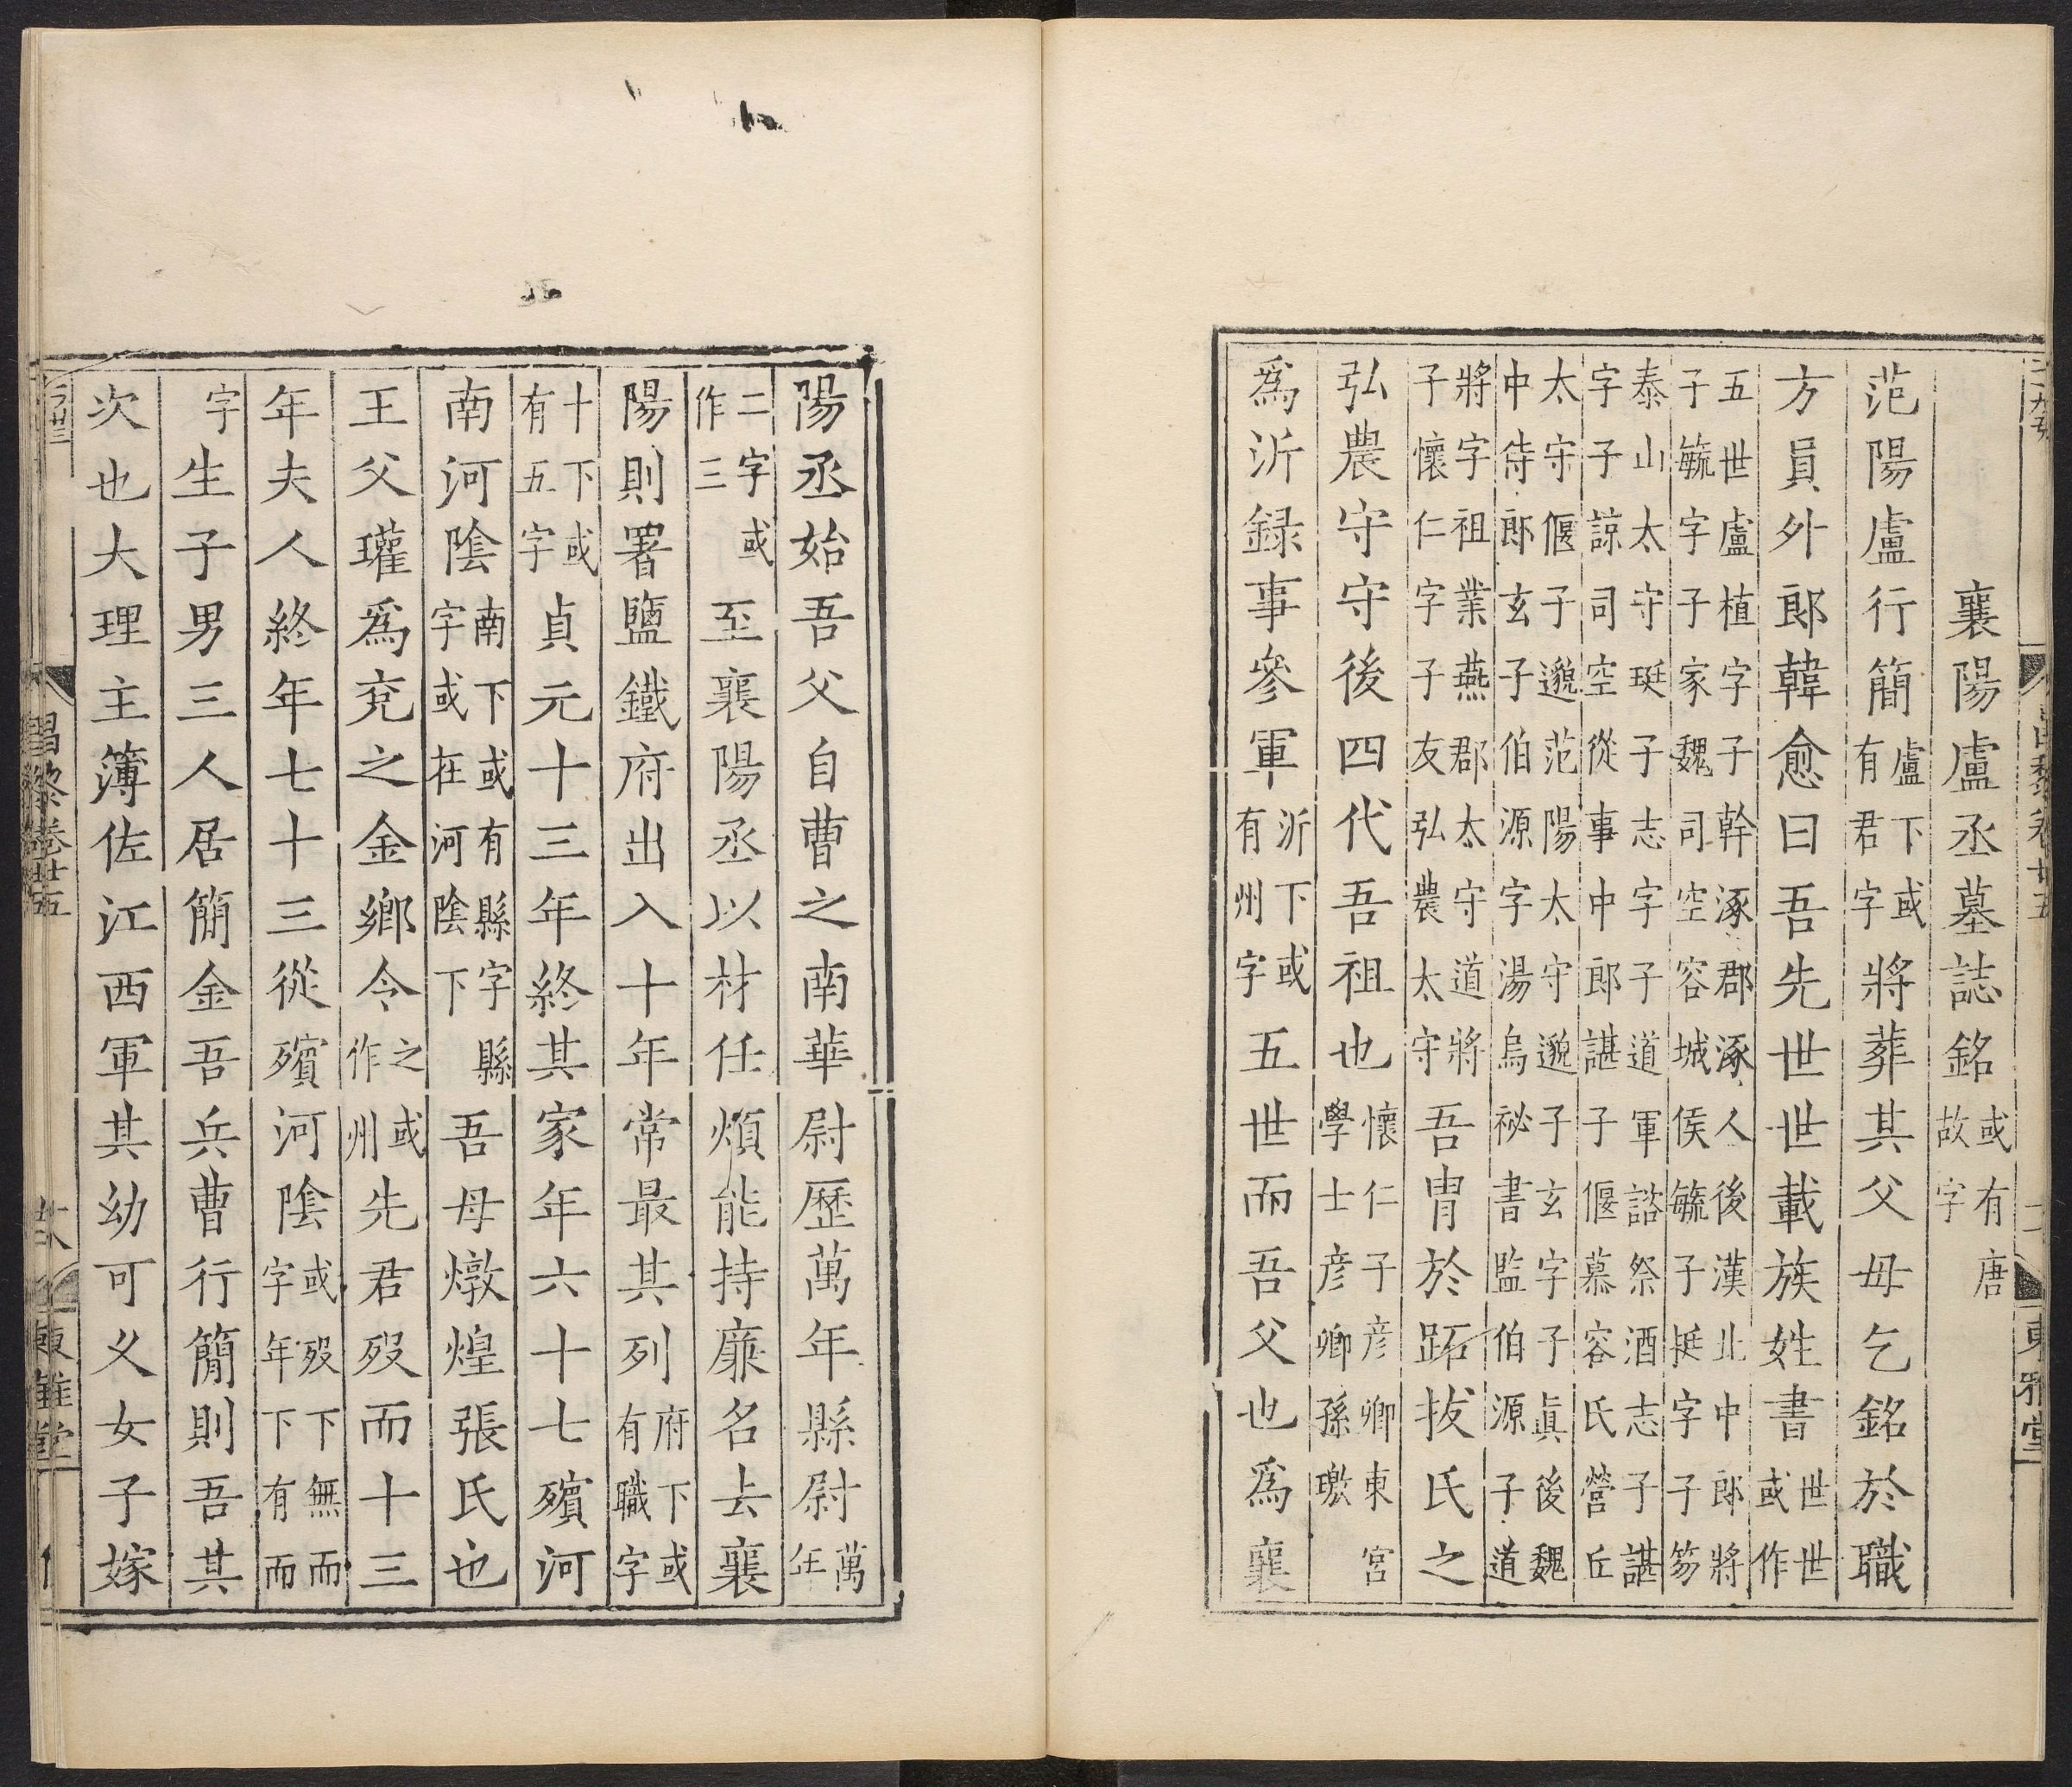 襄陽盧丞墓誌銘或有唐故字
范陽盧行簡盧下或有君字將葬其父母乞銘於職
方員外郎韓愈曰吾先世世載族姓書世世或作
五世盧植字子幹涿郡涿人後漢北中郎將子毓字子家魏司空容城侯毓子挺字子笏
泰山太守珽子志字子道軍諮祭酒志子諶字子諒司空從事中郎諶子偃慕容氏營丘
太守偃子邈范陽太守邈子玄字子眞後魏中侍郎玄子伯源字湯烏祕書監伯源子道
將字祖業燕郡太守道將子懷仁字子友弘農太守吾冑於跖拔氏之
弘農守守後四代吾祖也懷仁子彦卿東宮學士彦卿孫璬
爲沂録事參軍沂下或有州字五世而吾父也爲襄
陽丞始吾父自曹之南華尉歷萬年縣尉萬年
二字或作三至襄陽丞以材任煩能持廉名去襄
陽則署鹽鐵府出入十年常最其列府下或有職字
十下或有五字貞元十三年終其家年六十七殯河
南河陰南下或有縣字或在河陰下縣字吾母燉煌張氏也
王父瓘爲兗之金鄉令之或作州先君歿而十三
年夫人終年七十三從殯河陰或歿下無而字年下有而
字生子男三人居簡金吾兵曹行簡則吾其
次也大理主簿佐江西軍其幼可乂女子嫁
昌黎卷廿五
東雅堂